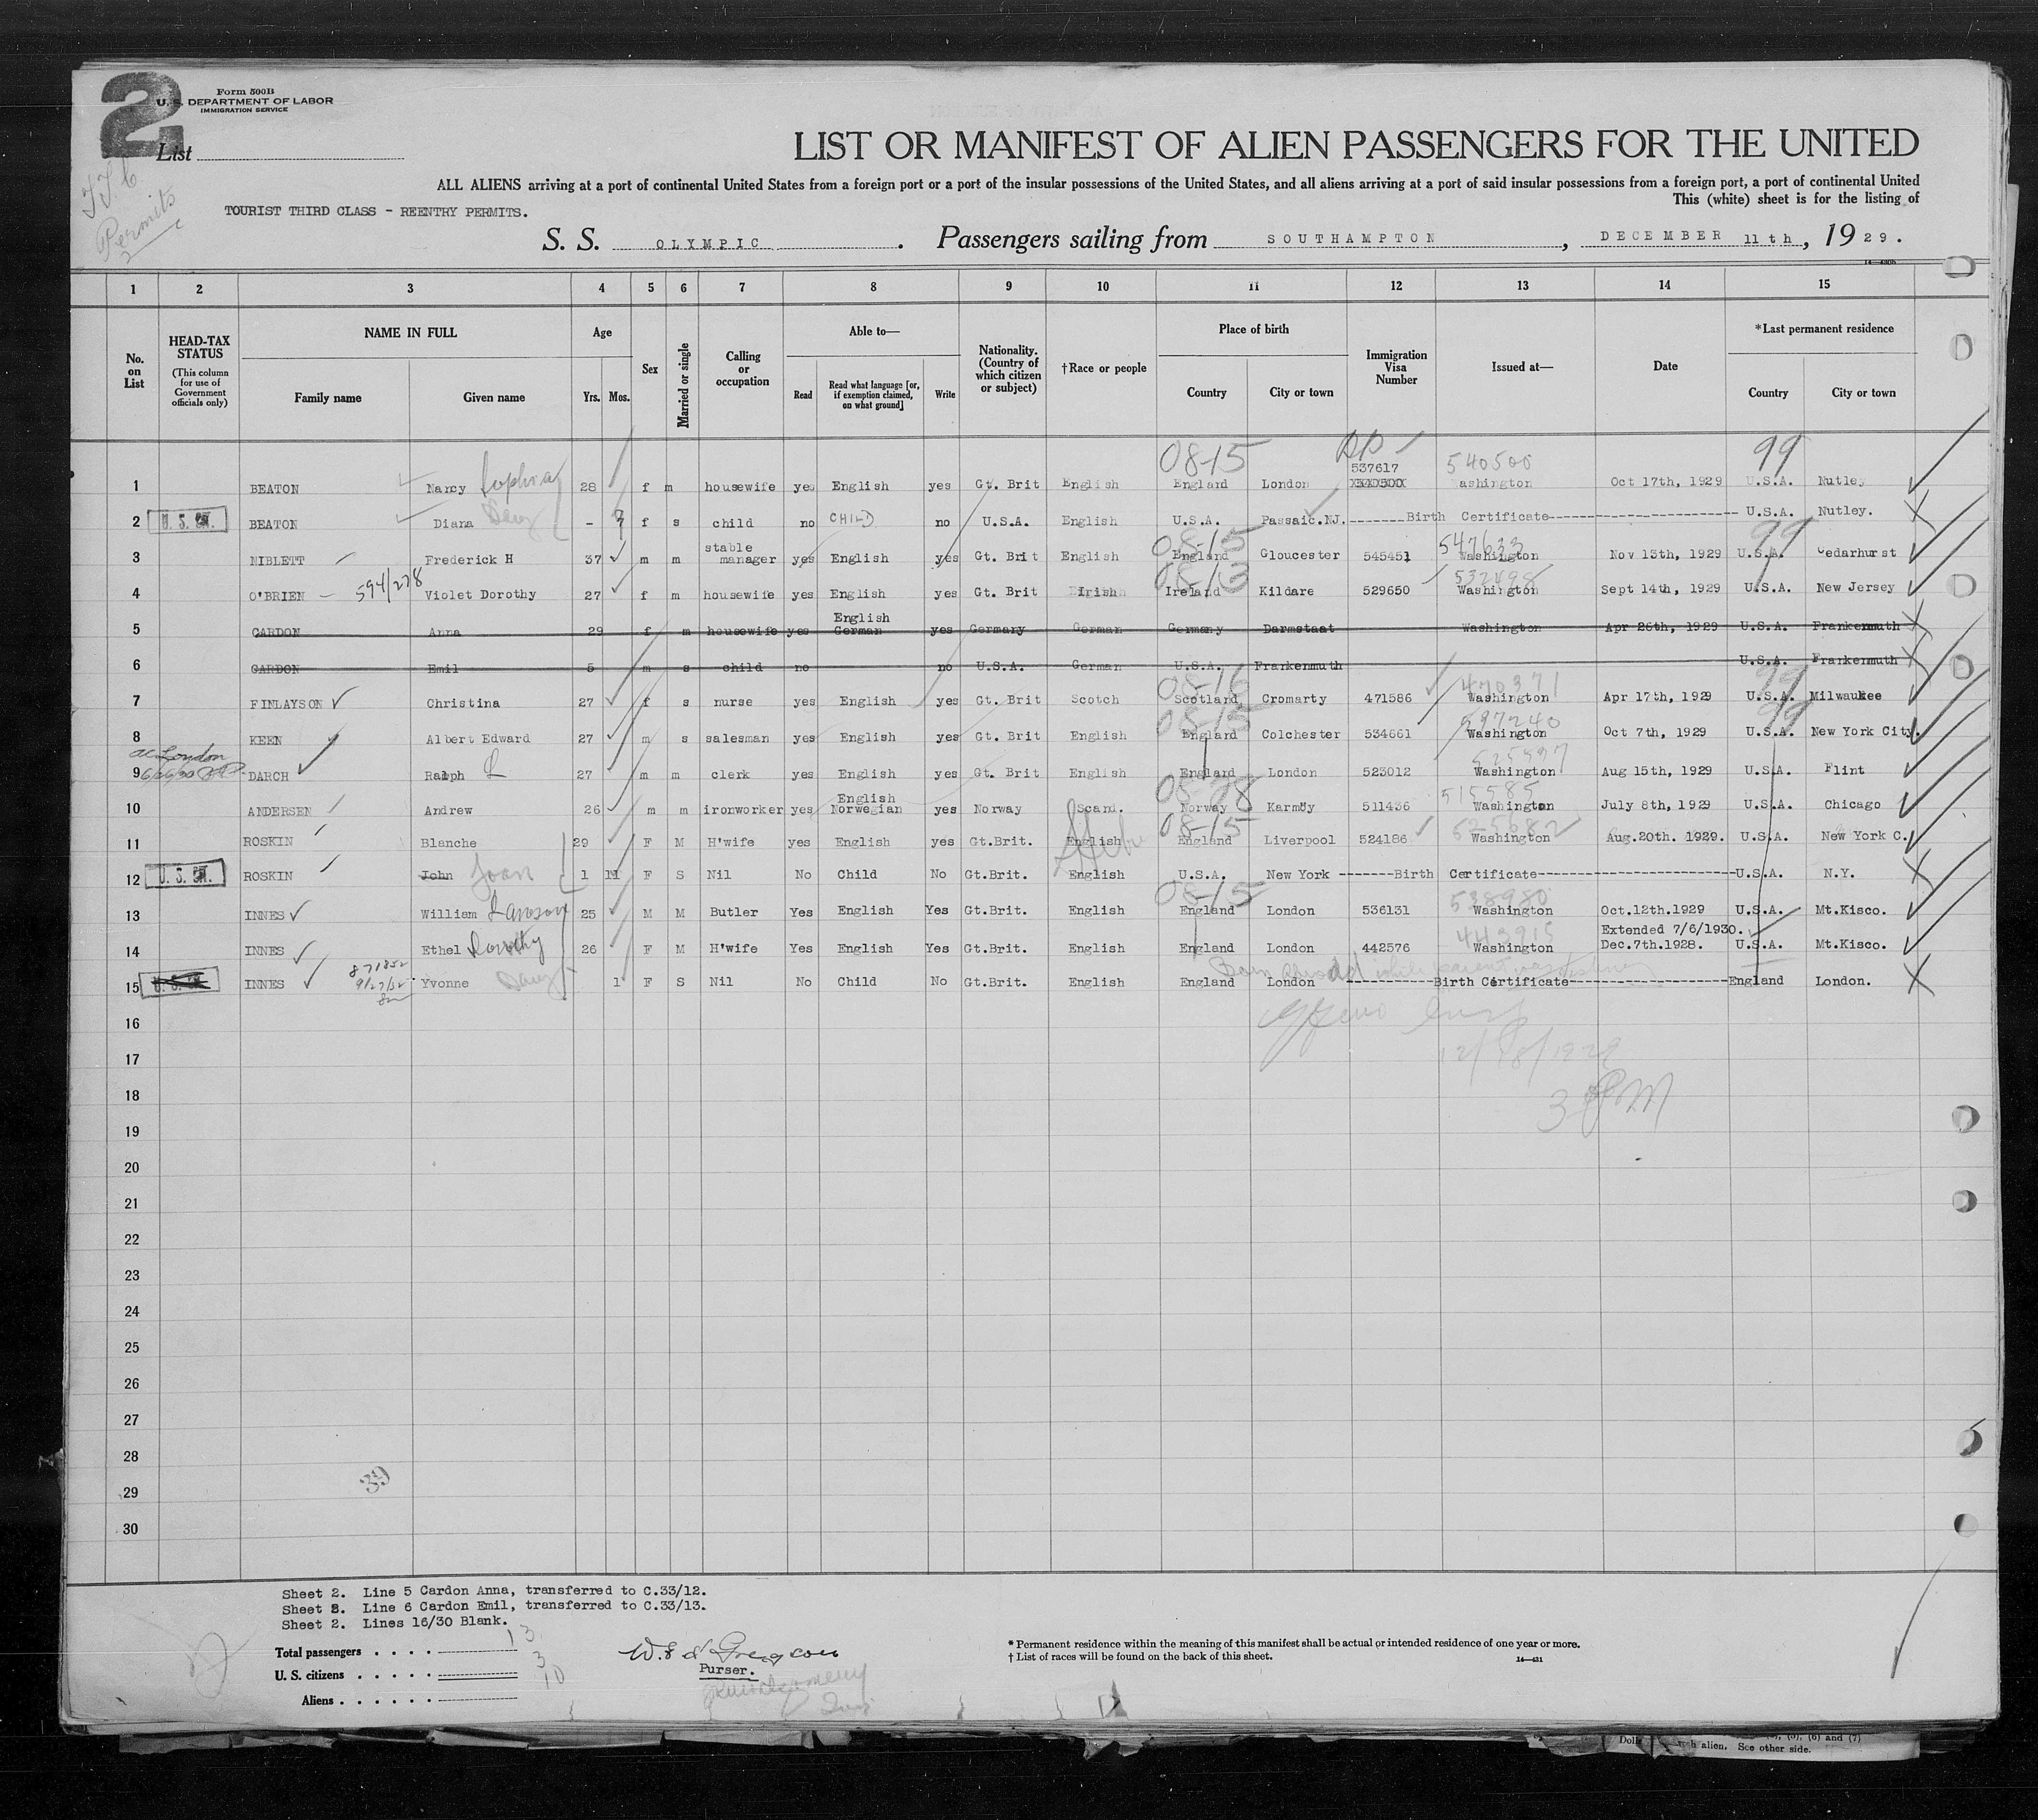 2
Form 500B
U. S. DEPARTMENT OF LABOR
IMMIGRATION SERVICE
List
Permits
LIST OR MANIFEST OF ALIEN PASSENGERS FOR THE UNITED
ALL ALIENS arriving at a port of continental United States from a foreign port or a port of the insular possessions of the United States, and all aliens arriving at a port of said insular possessions from a foreign port, a port of continental United
This (white) sheet is for the listing of
TOURIST THIRD CLASS - REENTRY PERMITS.
S. S. OLYMPIC . Passengers sailing from SOUTHAMPTON , DECEMBER 11th , 19 29.
1 2 3 4 5 6 7 8 9 10 11 12 13 14 15
No. on List
HEAD-TAX STATUS (This column for use of Government officials only)
NAME IN FULL Family name Given name
Age Yrs. Mos.
Sex
Married or single
Calling or occupation
Able to— Read Read what language [or, if exemption claimed, on what ground] Write
Nationality. (Country of which citizen or subject)
†Race or people
Place of birth Country City or town
Immigration Visa Number
Issued at—
Date
*Last permanent residence Country City or town
08-15 99
537617 540500
1 BEATON Nancy Sophia 28 f m housewife yes English yes Gt. Brit English England London ashington Oct 17th, 1929 U.S.A. Nutley
2 U. S. BEATON Diana - 7 f s child no CHILD no U.S.A. English U.S.A. Passaic.NJ. Birth Certificate U.S.A. Nutley.
08-15 547633 99
3 NIBLETT Frederick H 37 m m stable manager yes English yes Gt. Brit English England Gloucester 545451 Washington Nov 15th, 1929 U.S.A. Cedarhurst
594/278 08-13 532498
4 O'BRIEN Violet Dorothy 27 f m housewife yes English yes Gt. Brit Irish Ireland Kildare 529650 Washington Sept 14th, 1929 U.S.A. New Jersey
5 CARDON Anna 29 f m housewife yes English German yes Germany German Germany Darmstaat Washington Apr 26th, 1929 U.S.A. Frankenmuth
6 CARDON Emil 5 m s child no no U.S.A. German U.S.A. Frankenmuth U.S.A. Frankenmuth
08-16 470371 99
7 FINLAYSON Christina 27 f s nurse yes English yes Gt. Brit Scotch Scotland Cromarty 471586 Washington Apr 17th, 1929 U.S.A. Milwaukee
08-15 537240 99
8 KEEN Albert Edward 27 m s salesman yes English yes Gt. Brit English England Colchester 534661 Washington Oct 7th, 1929 U.S.A. New York City.
London
9 DARCH Ralph L 27 m m clerk yes English yes Gt. Brit English England London 523012 Washington Aug 15th, 1929 U.S.A. Flint
08-28 515585
10 ANDERSEN Andrew 26 m m ironworker yes English Norwegian yes Norway Scand. Norway Karmöy 511436 Washington July 8th, 1929 U.S.A. Chicago
08-15 525682
11 ROSKIN Blanche 29 F M H'wife yes English yes Gt.Brit. English England Liverpool 524186 Washington Aug.20th. 1929. U.S.A. New York C.
12 U. S. ROSKIN John Joan 1 11 F S Nil No Child No Gt.Brit. English U.S.A. New York Birth Certificate U.S.A. N.Y.
08-15 538980
13 INNES William 25 M M Butler Yes English Yes Gt.Brit. English England London 536131 Washington Oct.12th.1929 U.S.A. Mt.Kisco.
Extended 7/6/1930.
443915
14 INNES Ethel Dorothy 26 F M H'wife Yes English Yes Gt.Brit. English England London 442576 Washington Dec.7th.1928. U.S.A. Mt.Kisco.
871852
9/27/32
15 INNES Yvonne 1 F S Nil No Child No Gt.Brit. English England London Birth Certificate England London.
16
12/18/1929
17
18
3 PM
19
20
21
22
23
24
25
26
27
28
29
39
30
Sheet 2. Line 5 Cardon Anna, transferred to C.33/12.
Sheet 2. Line 6 Cardon Emil, transferred to C.33/13.
Sheet 2. Lines 16/30 Blank.
Total passengers 13
U. S. citizens 3
Aliens 10
Purser.
* Permanent residence within the meaning of this manifest shall be actual or intended residence of one year or more.
† List of races will be found on the back of this sheet.
alien. See other side.